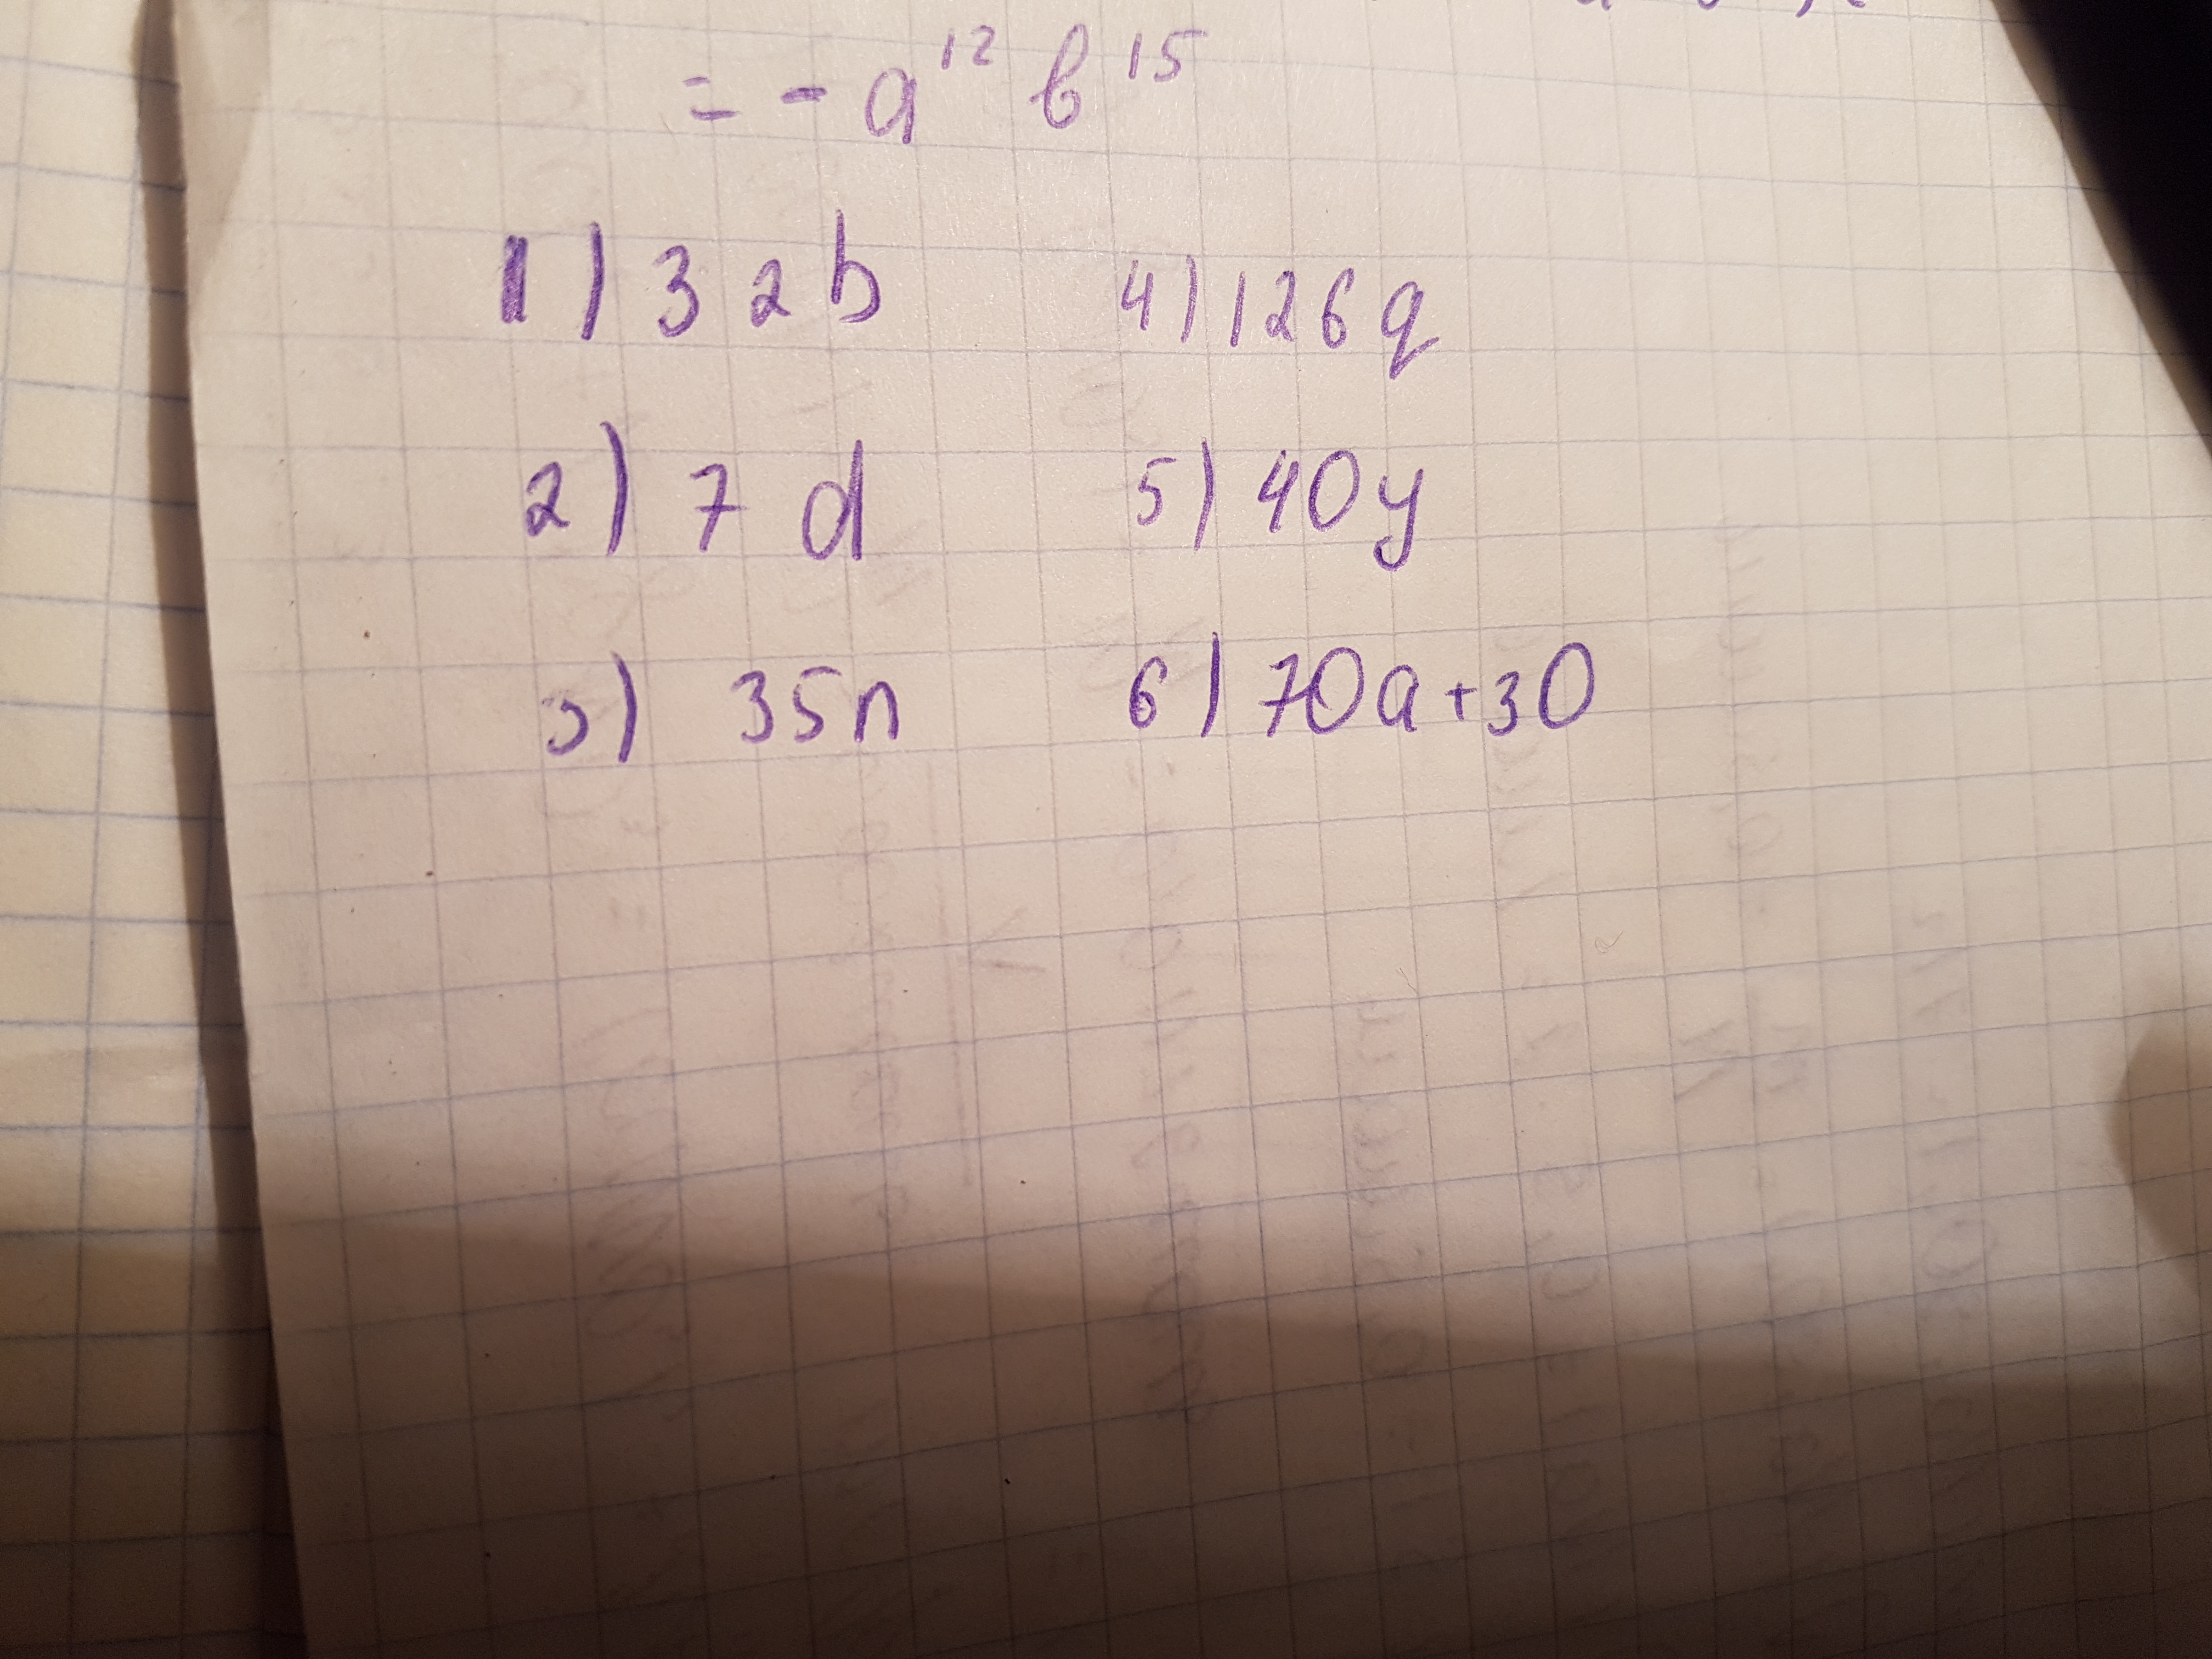 = - a¹² b¹⁵
1) 32b
2) 7d
3) 35n
4) 126q
5) 40y
6) 70a+30